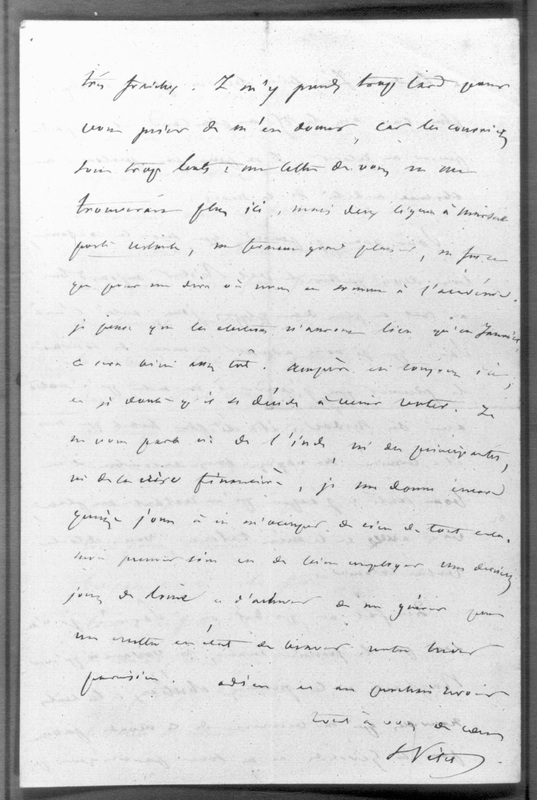 très fraiches. Je m'y prends trop tard pour
vous prier de m'en donner, car les courriers
sont trop lents ; une lettre de vous ne me
trouverait plus ici, mais deux lignes à Marseille
poste restante, me feraient grand plaisir, ne fut-ce
que pour me dire où nous en sommes à l'académie.
je pense que les élections n'auront lieu qu'en Janvier,
ce sera bien assez tôt. Ampère est toujours ici,
et je doute qu'il se décide à venir voter. Je
ne vous parle ni de l'inde ni des principautés,
ni de la crise financière, je me donne encore
quinze jours à ne m'occuper de rien de tout cela.
mon premier soin est de bien employer mes derniers
jours de Rome et d'achever de me guérir pour
me mettre en état de braver notre hiver
parisien. adieu et au prochain revoir
tout à vous de cœur
L Vitet